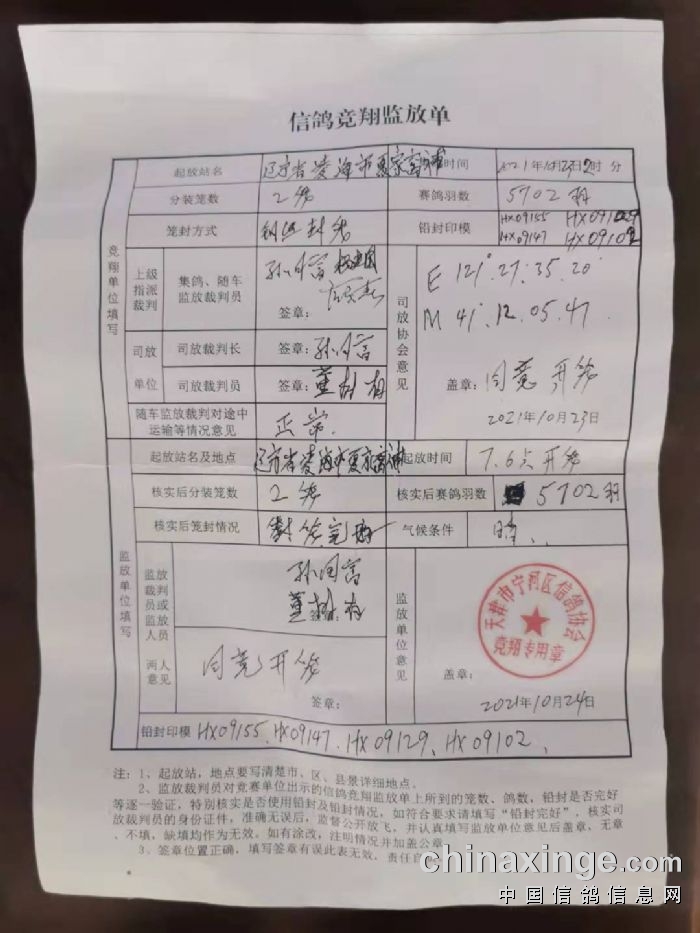 信鸽竞翔监放单
竞翔单位填写
起放站名 辽宁省凌海市 时间 2021年10月23日 时 分
分装笼数 2 赛鸽羽数 5702羽
笼封方式 铅封印模 HX09155 HX09129
HX09147 HX09102
上级指派裁判 集鸽、随车监放裁判员 签章:
司放协会意见 E 121°.27.35.20
M 41°.12.05.47
盖章: 同意开笼
2021年10月23日
司放单位 司放裁判长 签章:
司放裁判员 签章:
随车监放裁判对途中运输等情况意见 正常
监放单位填写
起放站名及地点 辽宁省凌海市 起放时间 7.6点开笼
核实后分装笼数 2 核实后赛鸽羽数 5702羽
核实后笼封情况 封笼完好 气候条件 晴
监放裁判员或监放人员
两人意见 同意开笼 签章:
监放单位意见 盖章:
天津市宁河区信鸽协会
竞翔专用章
2021年10月24日
铅封印模 HX09155、HX09147、HX09129、HX09102、
注:1、起放站,地点要写清楚市、区、县景详细地点。
2、监放裁判员对竞赛单位出示的信鸽竞翔监放单上所到的笼数、鸽数,铅封是否完好
等逐一验证,特别核实是否使用铅封及铅封情况,如符合要求请填写“铅封完好”,核实司
放裁判员的身份证件,准确无误后,监督公开放飞,并认真填写监放单位意见后盖章,无章
、不填,缺填均作为无效。如有涂改,注明情况并加盖公章
3、签章位置正确,填写签章有误此表无效,责任自
chinaxinge.com
中国信鸽信息网